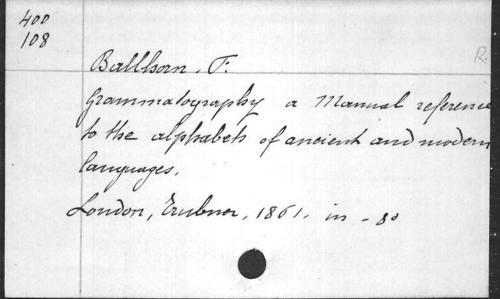 400
108
R.
Ballhorn, F.
Grammatography a Manual reference
to the alphabets of ancient and modern
languages.
London, Trubner, 1861. in - 8o